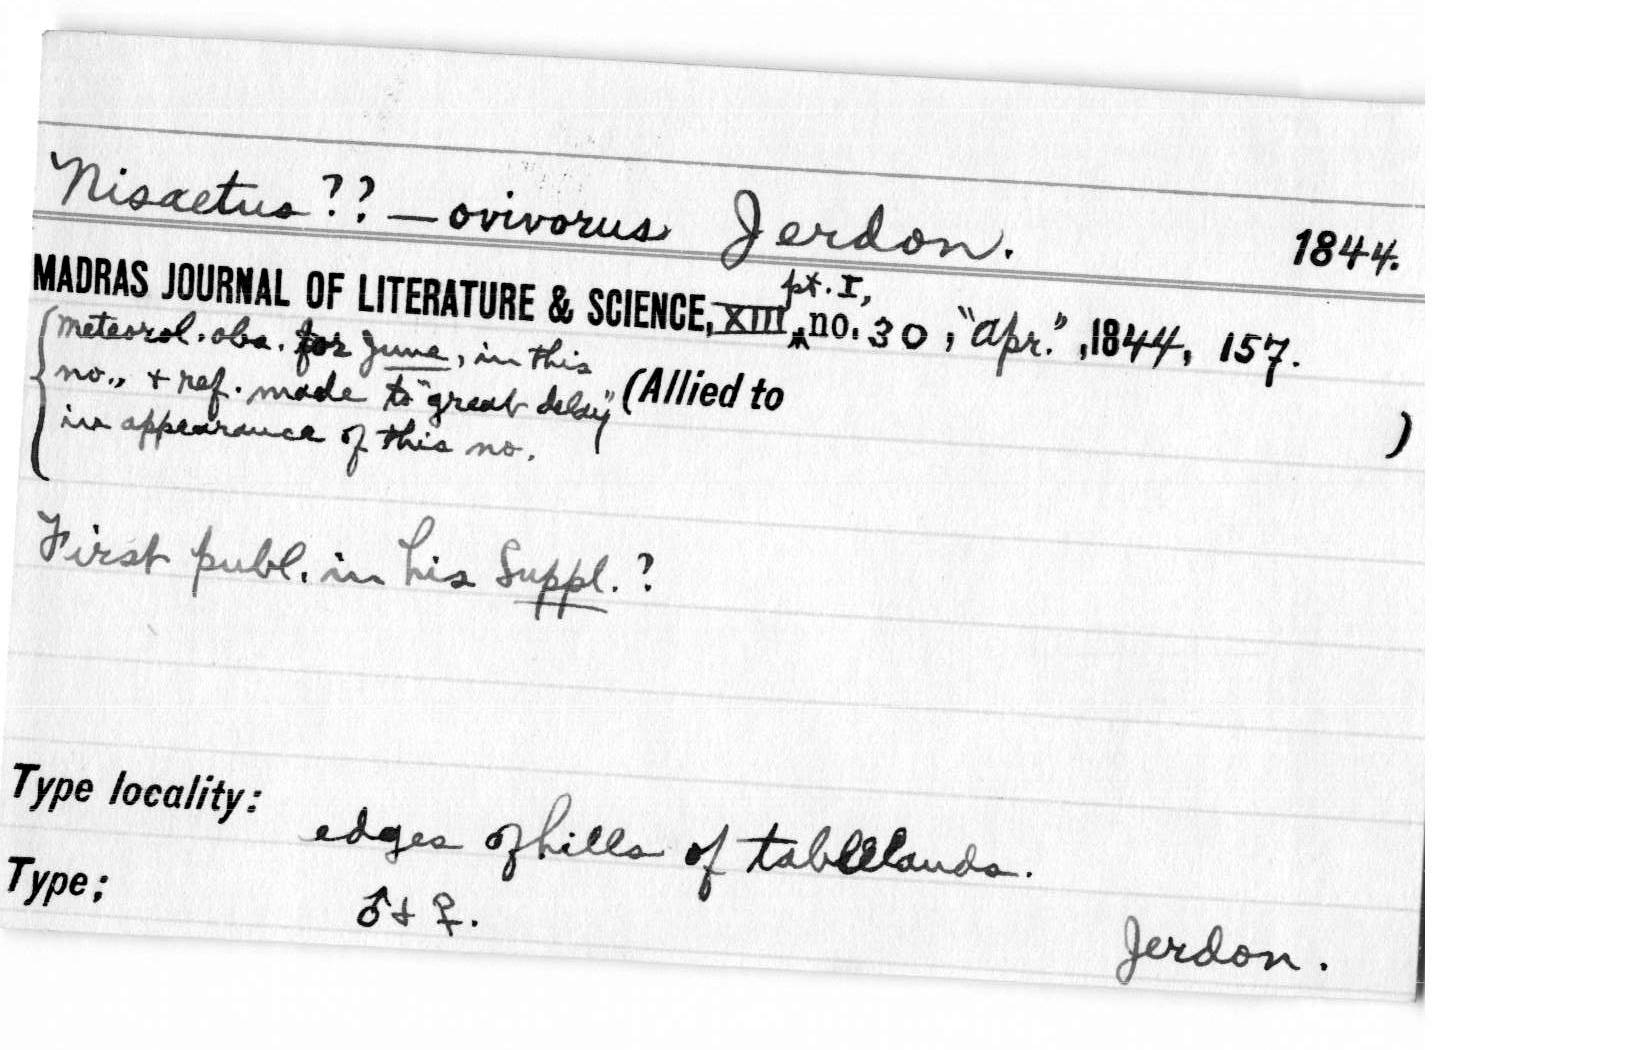 Nisaetus ?? — ovivorus Jerdon. 1844.
MADRAS JOURNAL OF LITERATURE & SCIENCE, XIII, pt. I, no. 30, "Apr.", 1844, 157.
(meteorol. obs. for June, in this
no., + ref. made to "great delay"
in appearance of this no.
(Allied to )
First publ. in his Suppl. ?
Type locality:
edges of hills of tablelands.
Type; ♂ + ♀.
Jerdon.